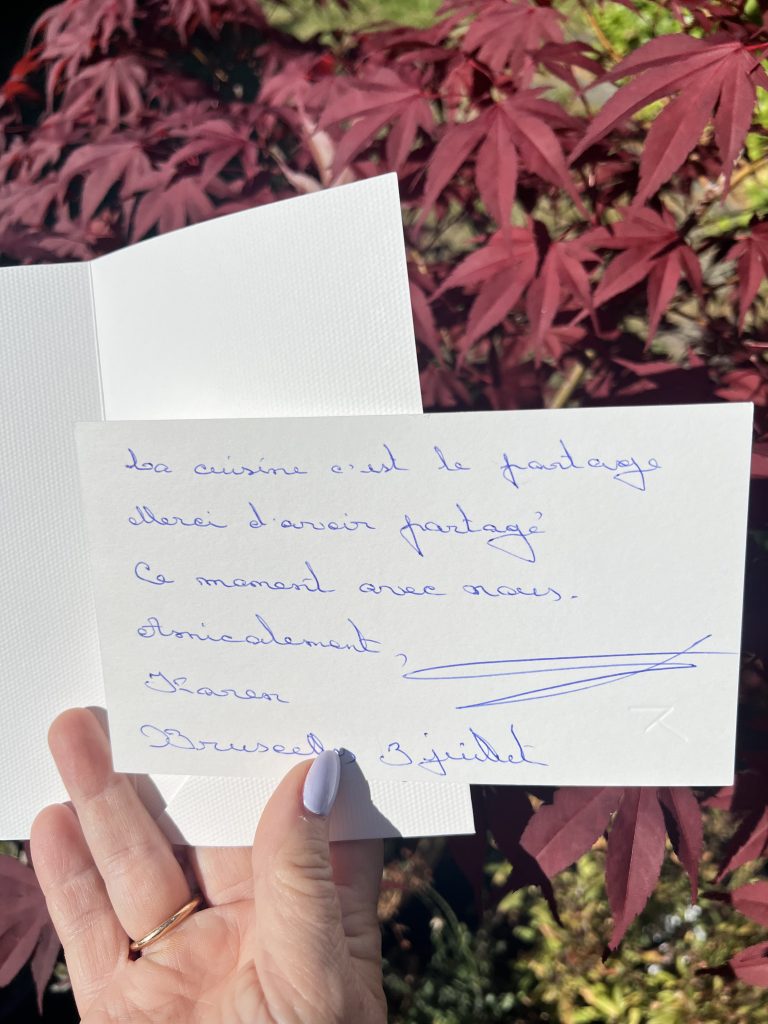 La cuisine c'est le partage
Merci d'avoir partagé
Ce moment avec nous.
Amicalement,
Karen
Bruxelles 3 juillet